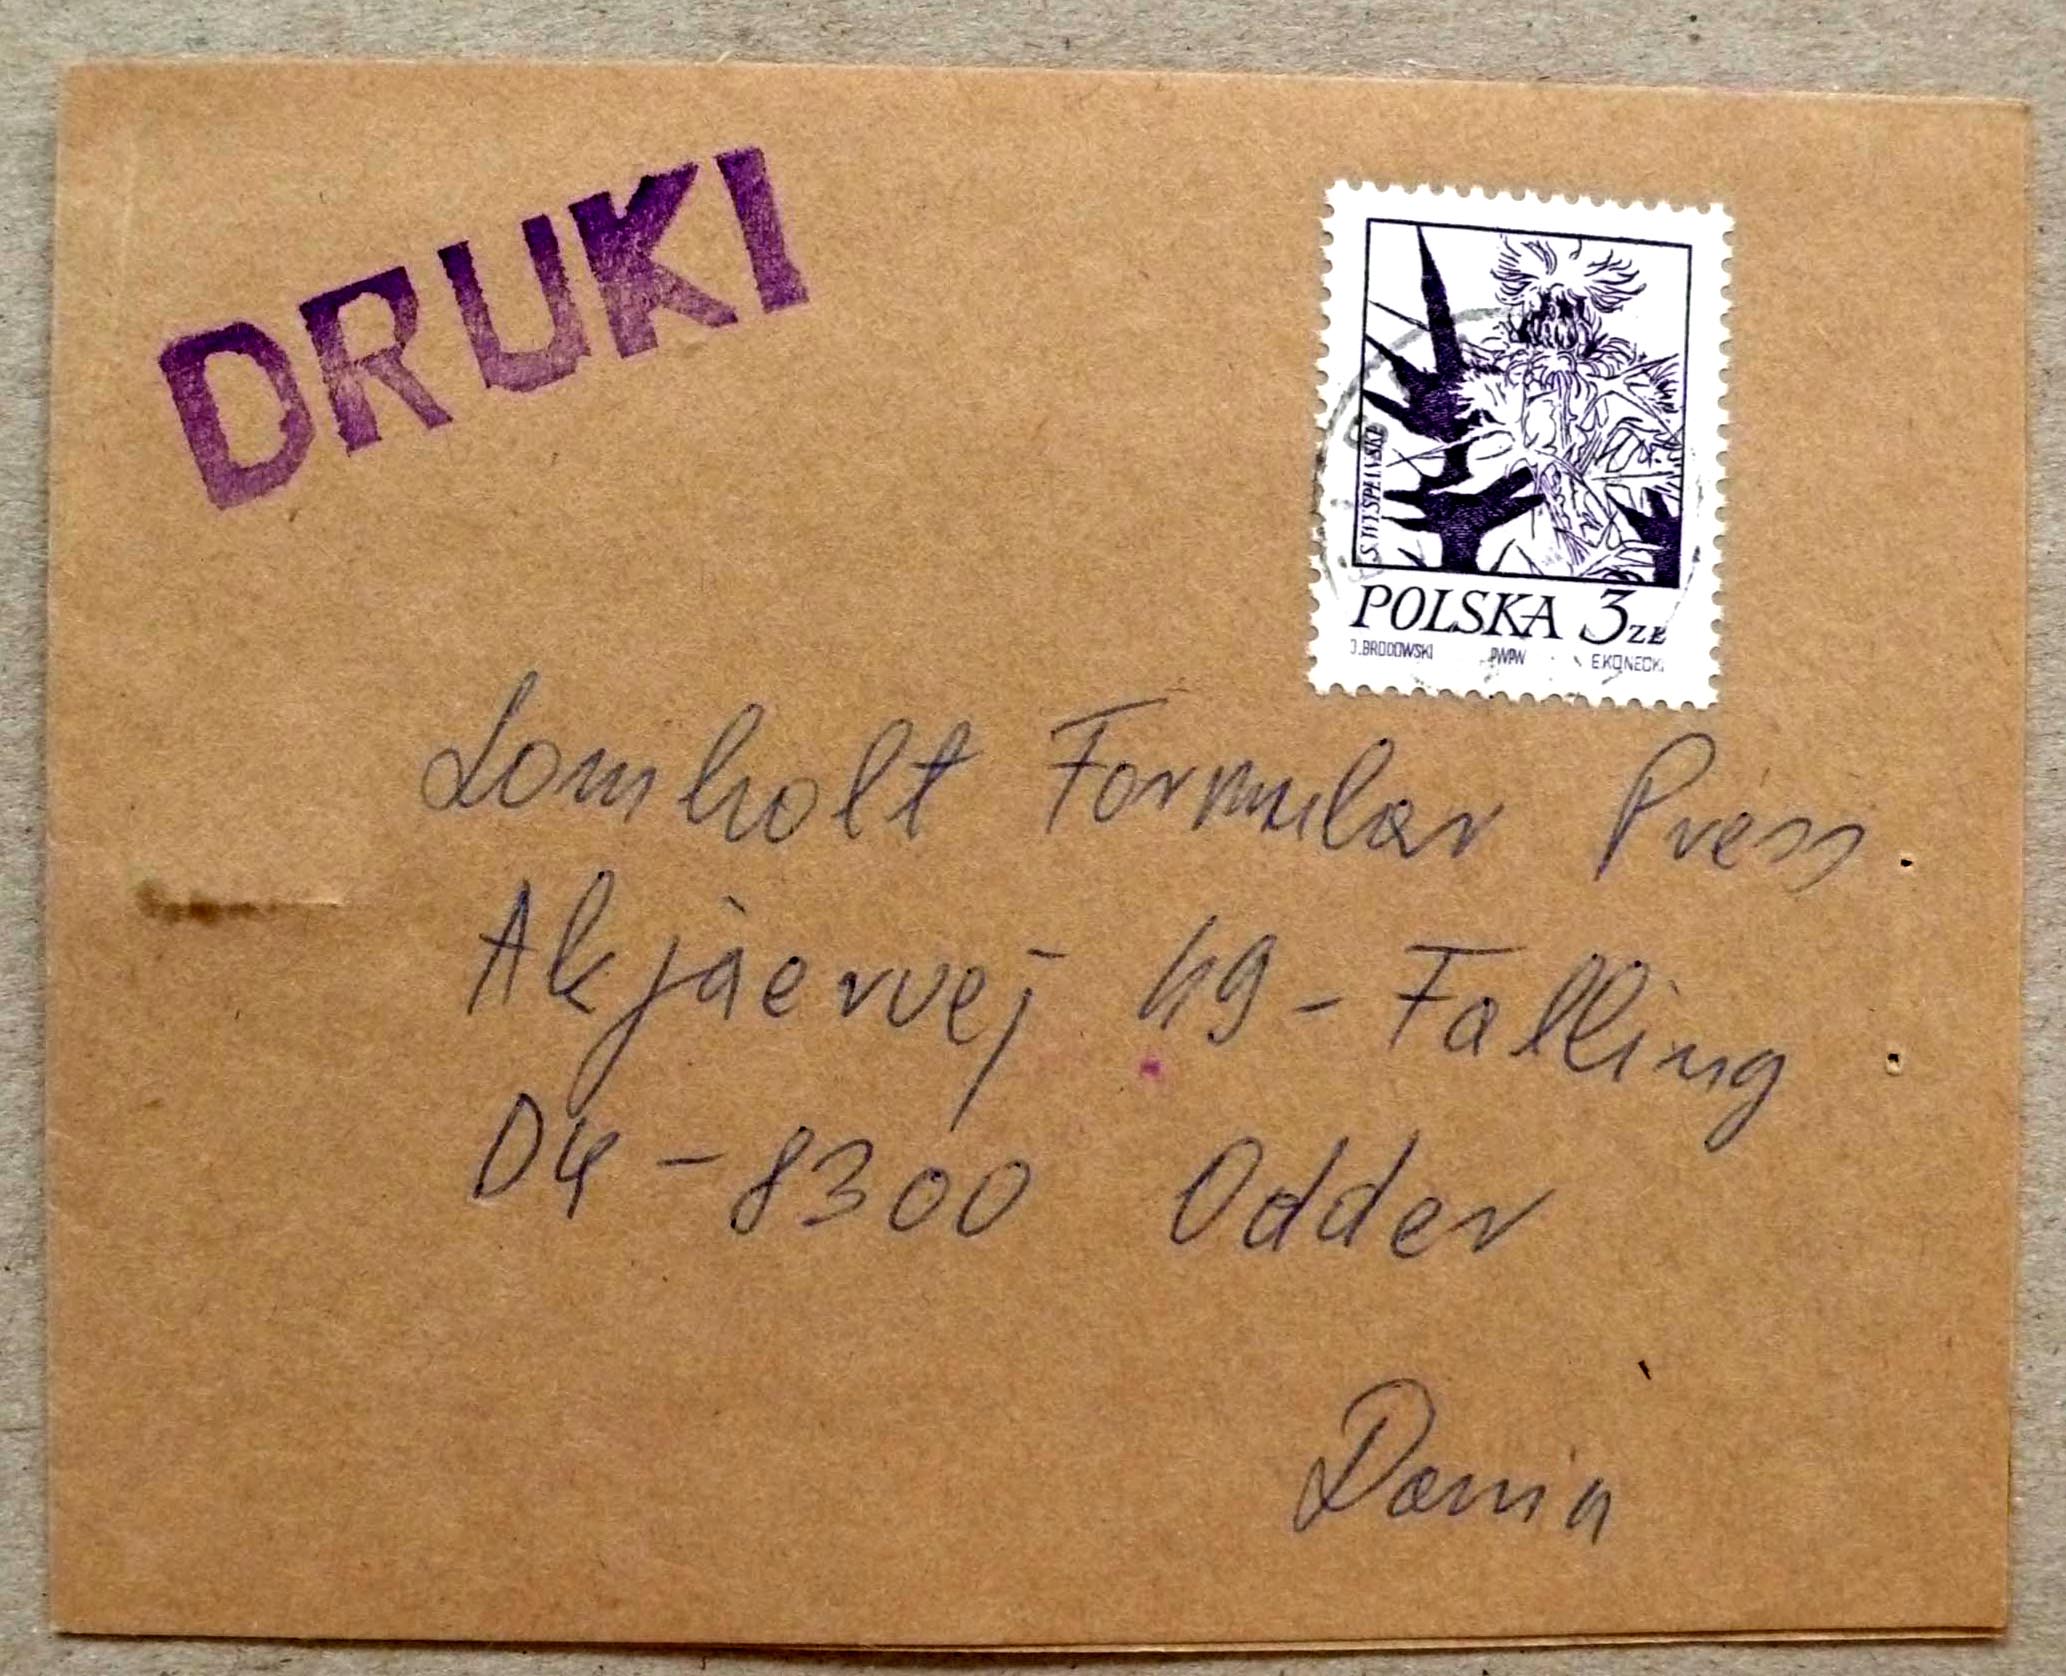 DRUKI
S. WYSPIAŃSKI
POLSKA 3 ZŁ
J. BRODOWSKI PWPW E KONECKI
Lomholt Formular Press.
Akjàervej 49 - Falling
DK - 8300 Odder
Dania